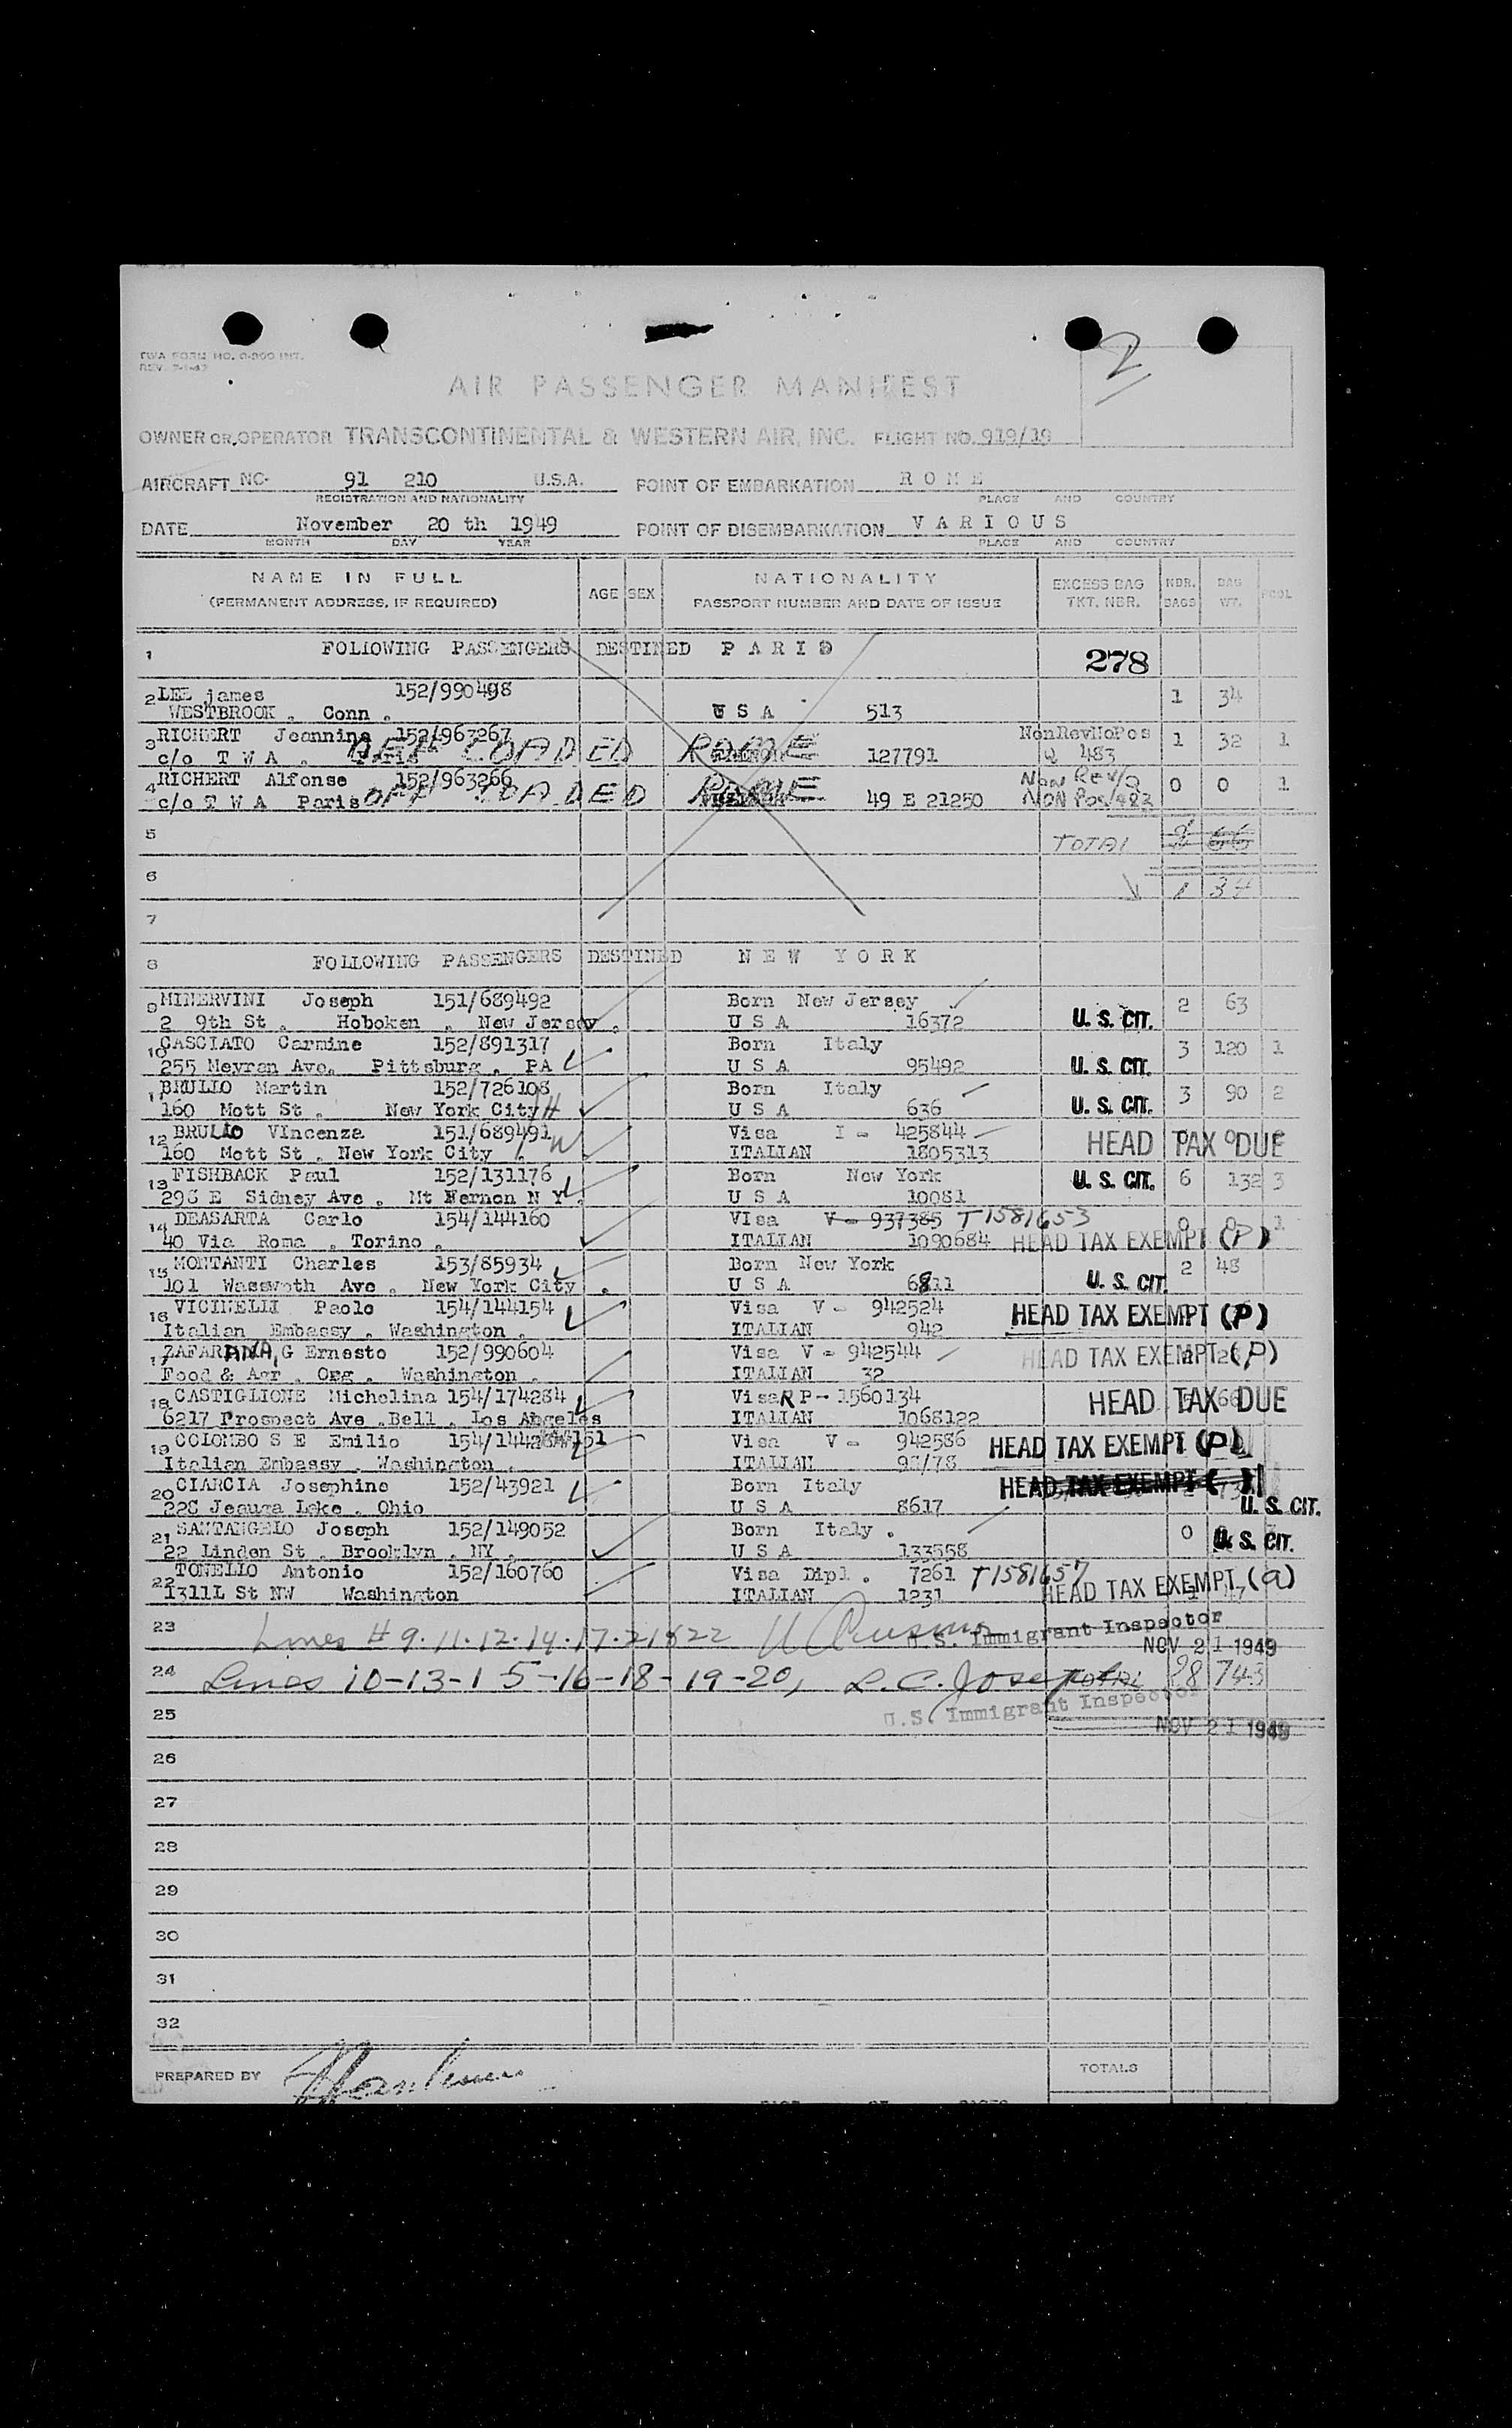 TWA FORM NO. O-800 INT.
2
AIR PASSENGER MANIFEST
OWNER OR OPERATOR TRANSCONTINENTAL & WESTERN AIR, INC. FLIGHT NO. 919/19
AIRCRAFT NC- 91 210 U.S.A. POINT OF EMBARKATION R O M E
REGISTRATION AND NATIONALITY PLACE AND COUNTRY
DATE November 20 th 1949 POINT OF DISEMBARKATION V A R I O U S
MONTH DAY YEAR PLACE AND COUNTRY
NAME IN FULL AGE SEX NATIONALITY EXCESS BAG NBR. BAG POOL
(PERMANENT ADDRESS, IF REQUIRED) PASSPORT NUMBER AND DATE OF ISSUE TKT. NBR. BAGS WT.
1 FOLLOWING PASSENGERS DESTINED P A R I S 278
2 LEE james 152/990498 1 34
WESTBROOK . Conn . U S A 513
3 RICHERT Jeannine 152/963267 NonRevNoPos 1 32 1
c/o T W A . Paris OFF LOADED ROME 127791 Q 483
4 RICHERT Alfonse 152/963266 Non Rev/Q 0 0 1
c/o T W A Paris OFF LOADED ROME 49 E 21250 NON Pos/483
5 TOTAL 2 66
6 1 34
7
8 FOLLOWING PASSENGERS DESTINED N E W Y O R K
9 MINERVINI Joseph 151/689492 Born New Jersey 2 63
2 9th St . Hoboken . New Jersey . U S A 16372 U. S. CIT.
10 CASCIATO Carmine 152/891317 Born Italy 3 120 1
255 Meyran Ave. Pittsburg . PA U S A 95492 U. S. CIT.
11 BRULLO Martin 152/726108 Born Italy 3 90 2
160 Mott St . New York City H U S A 636 U. S. CIT.
12 BRULLO VIncenza 151/689491 Visa I - 425844 HEAD TAX DUE
160 Mott St . New York City . W ITALIAN 1805313
13 FISHBACK Paul 152/131176 Born New York U. S. CIT. 6 132 3
298 E Sidney Ave . Mt Vernon N Y . U S A 10081
14 DEASARTA Carlo 154/144160 VIsa V - 937385 T1581653 0 0 1
40 Via Roma . Torino . ITALIAN 1090684 HEAD TAX EXEMPT (P)
15 MONTANTI Charles 153/85934 Born New York 2 48
101 Wasswoth Ave . New York City . U S A 6811 U. S. CIT.
16 VICINELLI Paolo 154/144154 Visa V - 942524 HEAD TAX EXEMPT (P)
Italian Embassy . Washington . ITALIAN 942
17 ZAFARANA, G Ernesto 152/990604 Visa V - 942544 HEAD TAX EXEMPT (P)
Food & Agr . Org . Washington . ITALIAN 32
18 CASTIGLIONE Michelina 154/174284 Visa RP - 1560134 HEAD TAX DUE
6217 Prospect Ave .Bell . Los Angeles ITALIAN 1068122
19 COLOMBO S E Emilio 154/144 151 Visa V - 942586 HEAD TAX EXEMPT (P)
Italian Embassy . Washington . ITALIAN 98/78
20 CIARCIA Josephine 152/43921 Born Italy HEAD TAX EXEMPT ( )
228 Jeauga Lake . Ohio U S A 8617 U. S. CIT.
21 SANTANGELO Joseph 152/149052 Born Italy . 0 U. S. CIT.
22 Linden St . Brooklyn . NY . U S A 133558
22 TONELLO Antonio 152/160760 Visa Dipl . 7261 T1581657
1311L St NW Washington ITALIAN 1231 HEAD TAX EXEMPT (a)
23 Lines # 9.11.12.14.17.21&22 U.S. Immigrant Inspector
NOV 21 1949
24 Lines 10-13-15-16-18-19-20, L. C. Joseph TOTAL 28 743
U.S. Immigrant Inspector
25 NOV 21 1949
26
27
28
29
30
31
32
PREPARED BY TOTALS